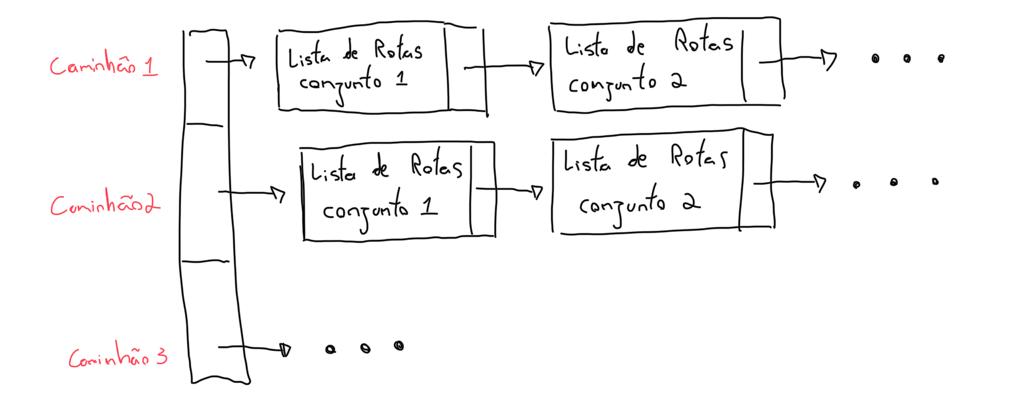 Caminhão 1
Lista de Rotas
conjunto 1
Lista de Rotas
conjunto 2
Caminhão 2
Lista de Rotas
conjunto 1
Lista de Rotas
conjunto 2
Caminhão 3